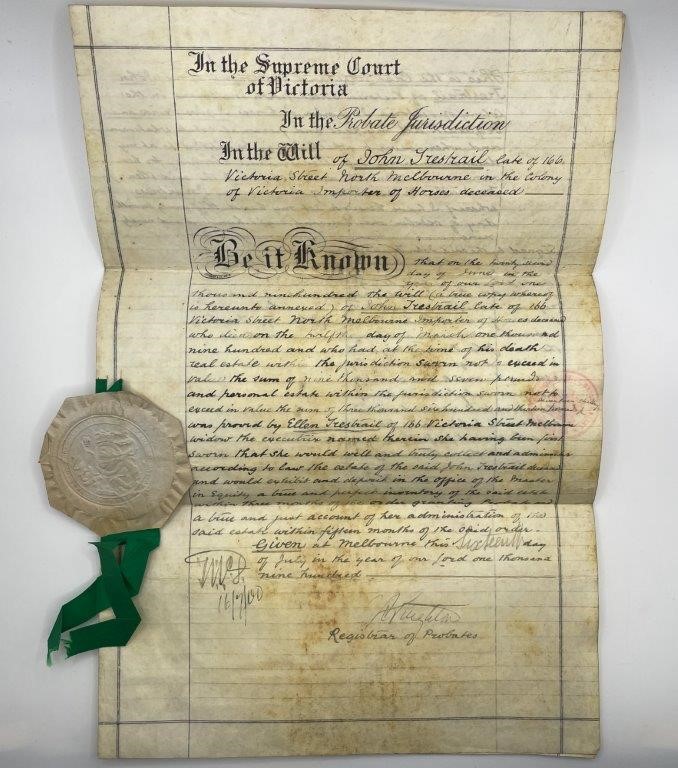 In the Supreme Court
of Victoria
In the Probate Jurisdiction
In the Will of John Trestrail late of 166
Victoria Street North Melbourne in the Colony
of Victoria Importer of Horses deceased
Be it Known that on the twenty
day of June in the
year of our Lord one
thousand nine hundred the Will (a true copy whereof
is hereunto annexed) of John Trestrail late of 166
Victoria Street North Melbourne Importer of Horses deceased
who died on the twelfth day of March one thousand
nine hundred and who had at the time of his death
real estate within the jurisdiction sworn not to exceed in
value the sum of nine thousand and seven pounds
and personal estate within the jurisdiction sworn not to
exceed in value the sum of three thousand six hundred and thirteen pounds
was proved by Ellen Trestrail of 166 Victoria Street Melbourne
widow the executrix named therein she having been first
sworn that she would well and truly collect and administer
according to law the estate of the said John Trestrail deceased
and would exhibit and deposit in the office of the Master
in Equity a true and perfect inventory of the said estate
within three months of the order granting Probate and
a true and just account of her administration of the
said estate within fifteen months of the said order
Given at Melbourne this Sixteenth day
of July in the year of our Lord one thousand
nine hundred
16/7/00
Registrar of Probates